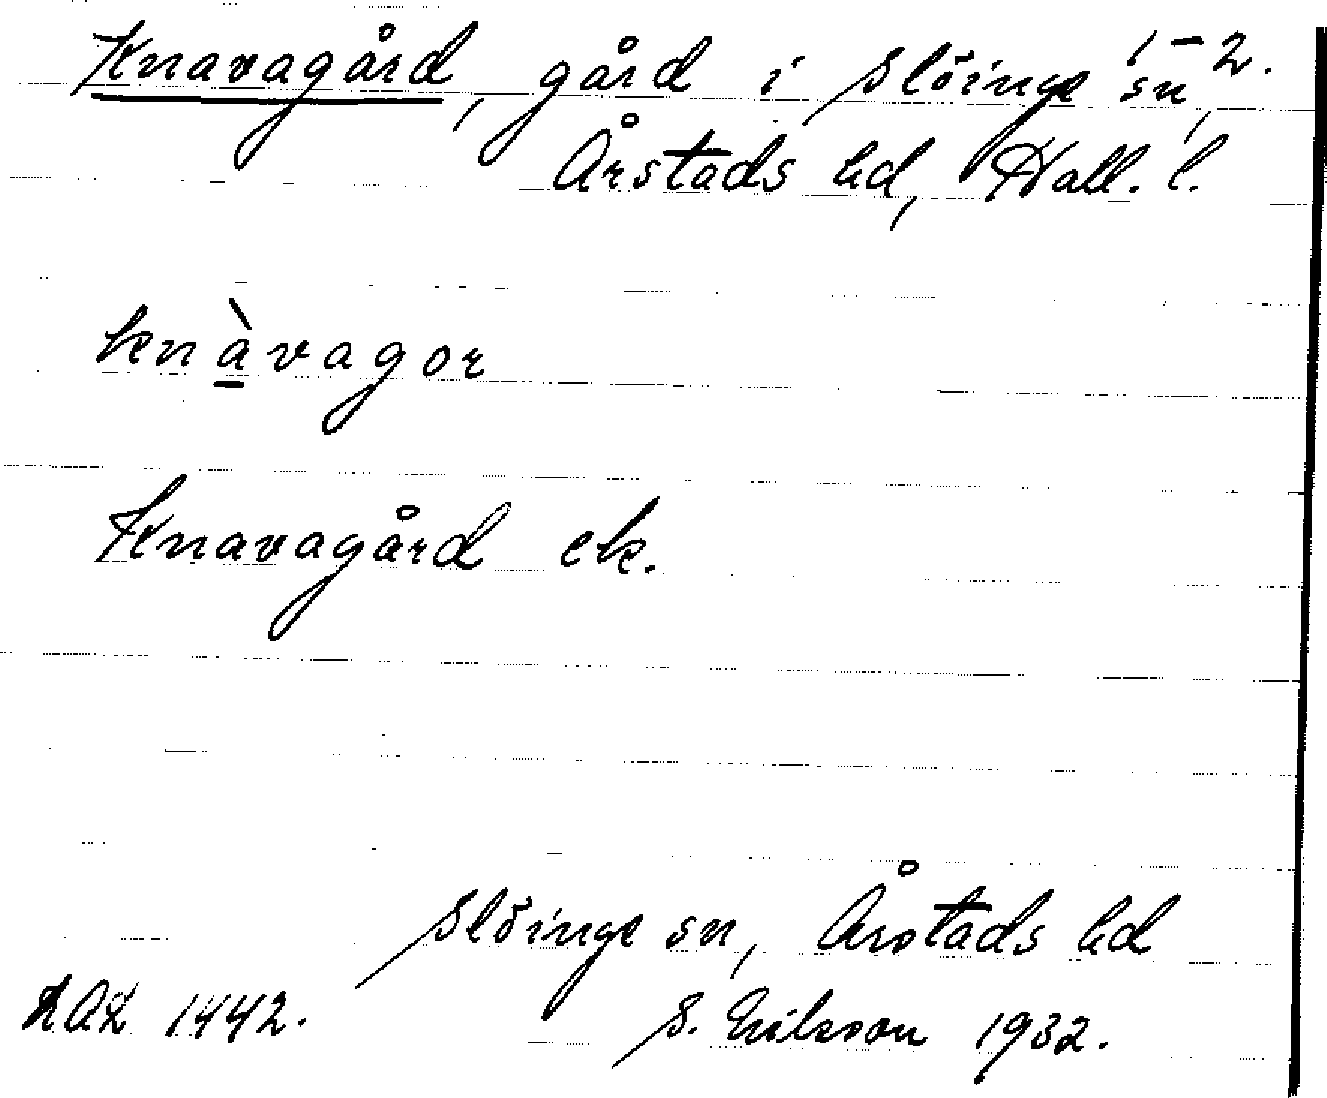 Knavagård, gård i Slöinge sn, 1-2.
Årstads hd, Hall. l.
knàvagor
Knavagård ek.
Slöinge sn, Årstads hd
LAL 1442. S. Eriksson 1932.